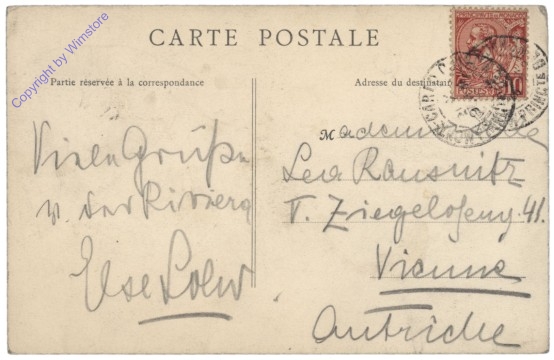 Copyright by Wimstore
CARTE POSTALE
Partie réservée à la correspondance
Adresse du destinataire
Viele Grüße
v. der Riviera
Else Loew
Mademoiselle
Lea Rausnitz
I. Ziegelofeng. 41.
Vienne
Autriche
10
POSTES